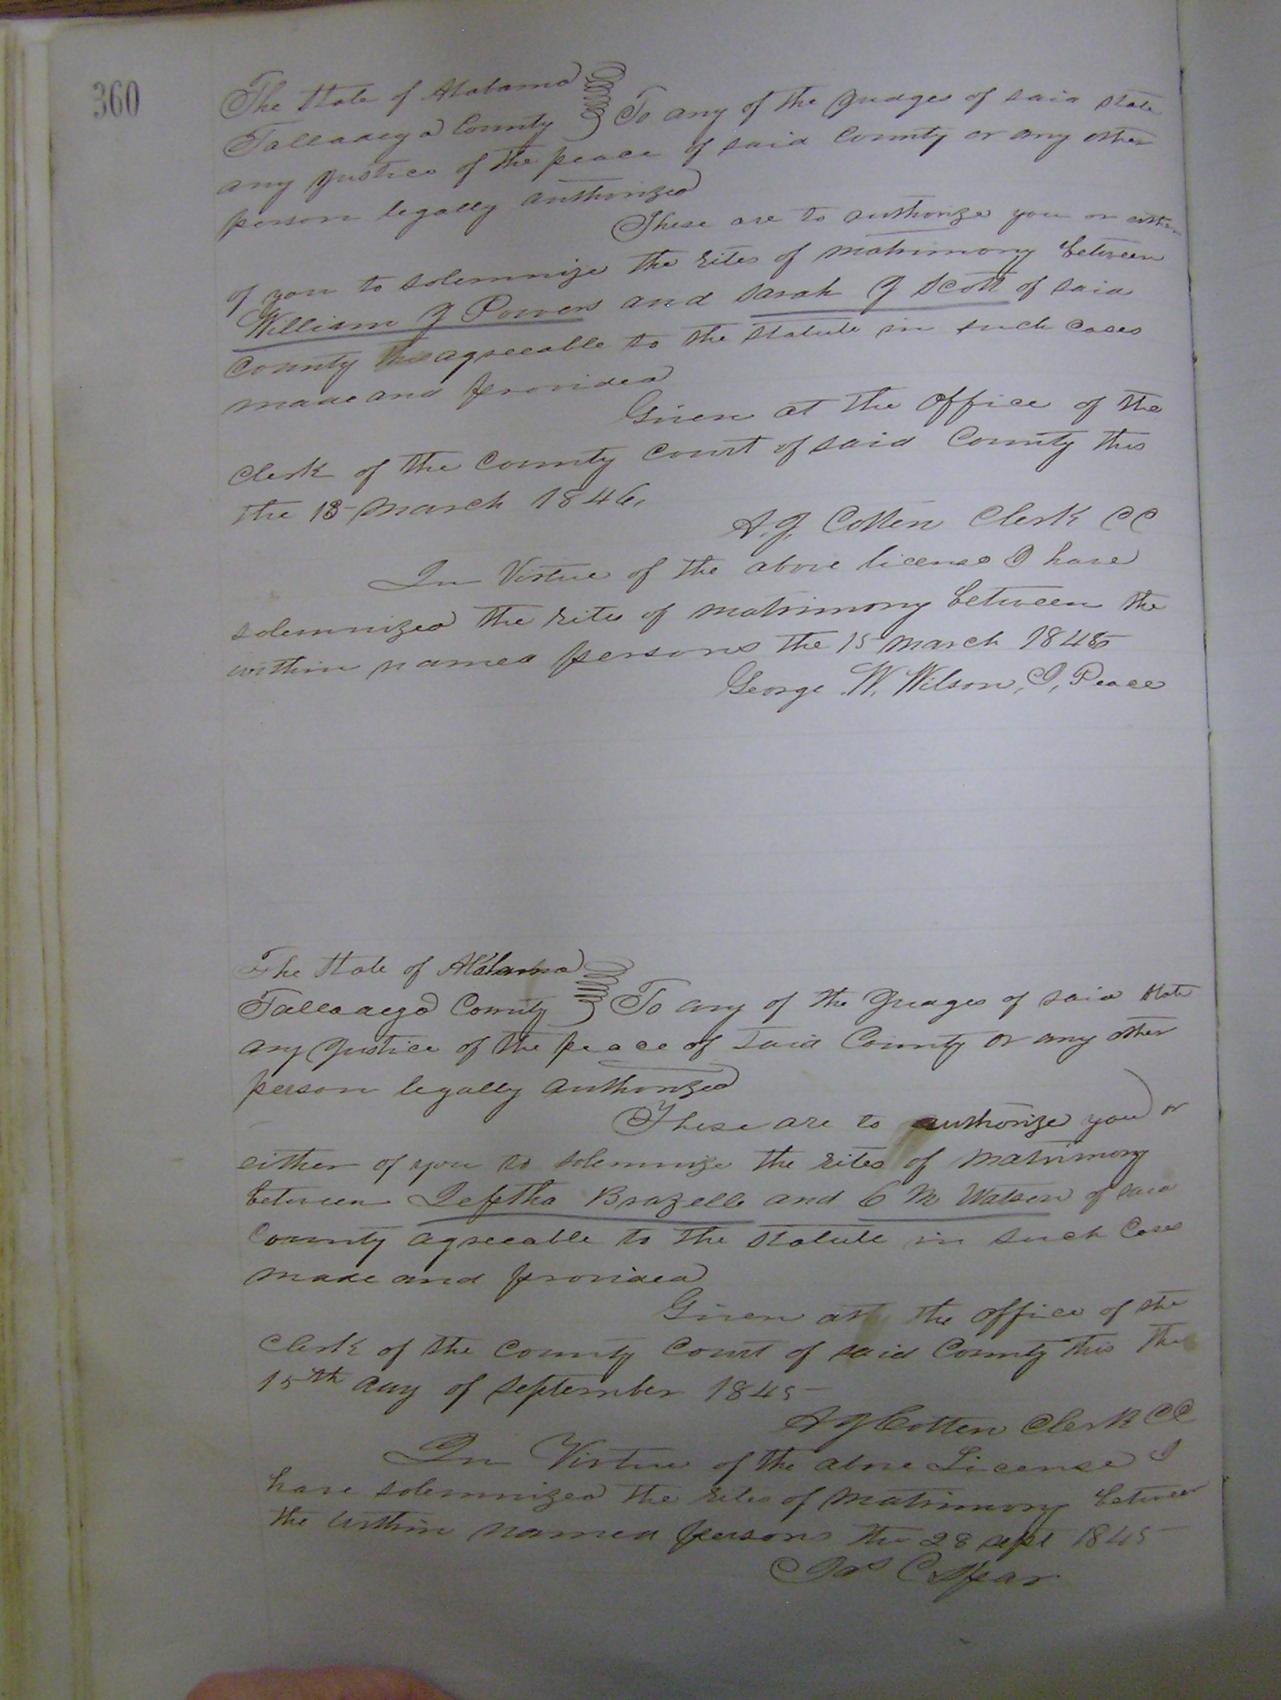 360
The State of Alabama
Talladega County } To any of the Judges of said State
any Justice of the peace of said County or any other
person legally authorized
These are to authorize you or either
of you to solemnize the rites of matrimony between
William J Powers and Sarah J Scott of said
County agreeable to the statute in such cases
made and provided
Given at the office of the
Clerk of the County Court of said County this
the 13 March 1846.
A. J. Cotten Clerk CC
In Virtue of the above license I have
solemnized the rites of matrimony between the
within named persons the 15 March
George W. Wilson, J, Peace
The State of Alabama
Talladega County } To any of the Judges of said State
any Justice of the peace of said County or any other
person legally authorized
These are to authorize you or
either of you to solemnize the rites of matrimony
between Jeptha Brazelle and C M Watson of said
County agreeable to the statute in such Cases
made and provided
Given at the office of the
Clerk of the County Court of said County this the
15th day of September 1845
A J Cotten Clerk CC
In Virtue of the above License I
have solemnized the rites of Matrimony between
the within named persons the 28 Sept 1845
Jas C Spear